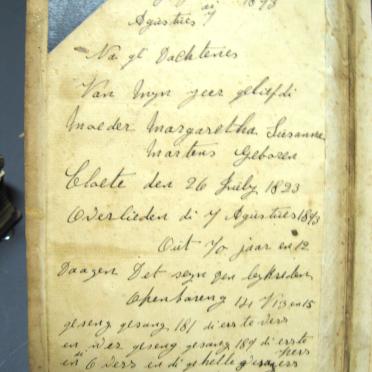 di 1893
Agustues 7
Na ge Dachtenies
Van Myn zeer geliefdi
Moeder Margaretha Susanna
Martens Geboren
Cloete den 26 July 1823
Overlieden di 7 Agustues 1893
Out 70 jaar en 12
Daagen Det seyn gen leykreden
Openbareng 14 V 13 en 15
geseng gesang 181 di erste Vers
en wer geseng gesang 189 di erste
en di 6 Vers en di ge helle gesang Vers